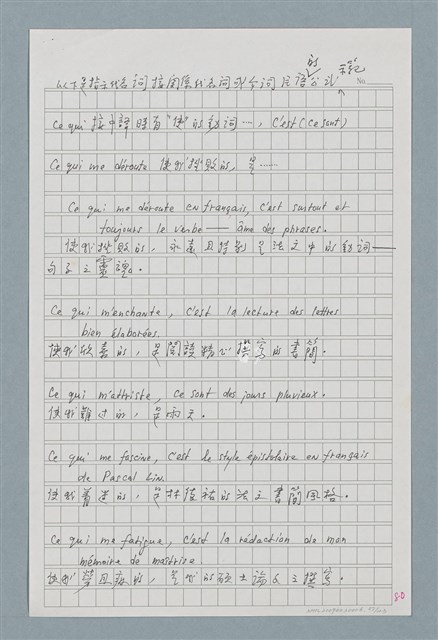 以下是指示代名词接関系代名词或介词片语的公式 示範
No.
Ce qui 接中譯時有"使"的動词…, C'est (Ce sont)
Ce qui me déroute 使我挫敗的, 是……
Ce qui me déroute en français, c'est surtout et
toujours le verbe — âme des phrases.
使我挫敗的, 永遠且特別是法文中的動词—
句子之靈魂。
Ce qui m'enchante, c'est la lecture des lettres
bien élaborées.
使我欣喜的, 是閱讀精心撰寫的書簡。
Ce qui m'attriste, ce sont des jours pluvieux.
使我難过的, 是雨天。
Ce qui me fascine, c'est le style épistolaire en français
de Pascal Lin.
使我着迷的, 是林值祐的法文書簡風格。
Ce qui me fatigue, c'est la rédaction de mon
mémoire de maîtrise.
使我勞且疲的, 是我的硕士論文之撰寫。
80